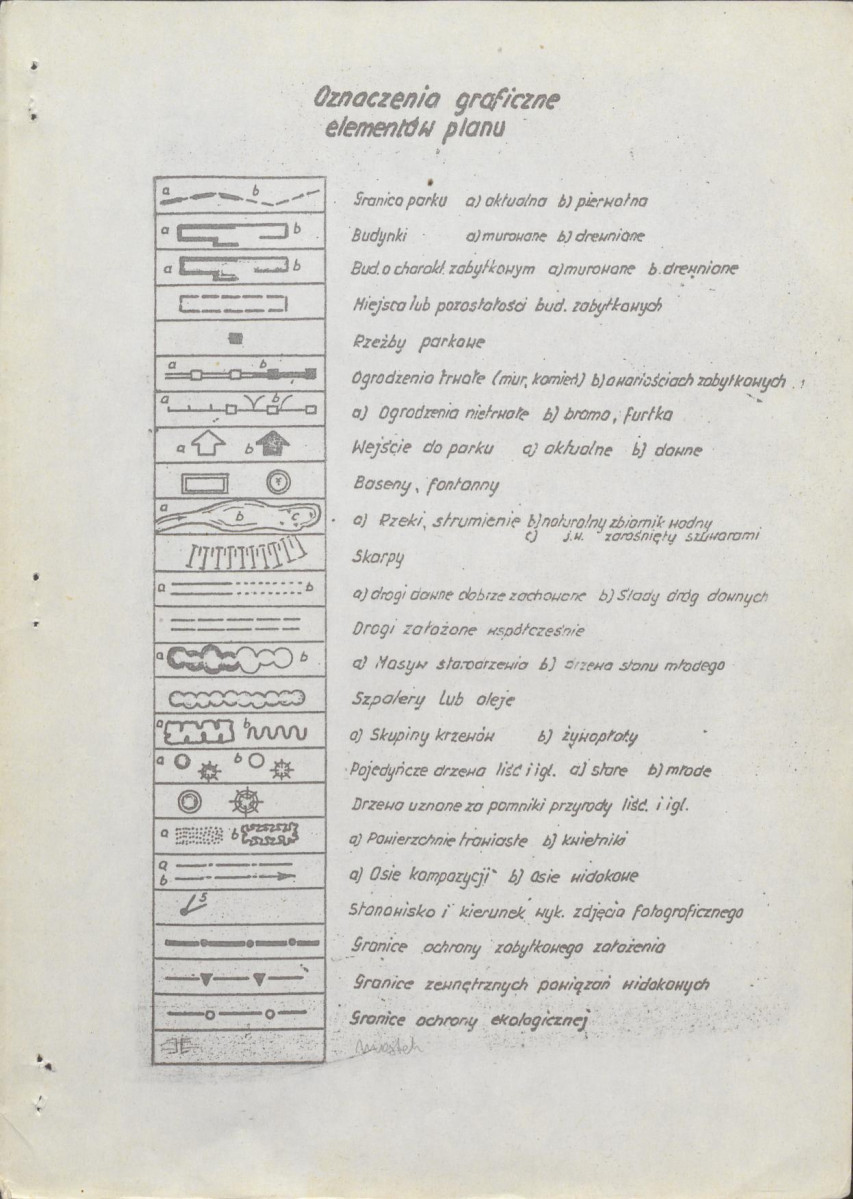 Oznaczenia graficzne
elementów planu
a b Granica parku a) aktualna b) pierwotna
a b Budynki a) murowane b) drewniane
a b Bud. o charakt. zabytkowym a) murowane b. drewniane
Miejsca lub pozostałości bud. zabytkowych
Rzeźby parkowe
a b Ogrodzenia trwałe (mur, kamień) b) o wartościach zabytkowych
a b a) Ogrodzenia nietrwałe b) brama, furtka
a b Wejście do parku a) aktualne b) dawne
Baseny, fontanny
a b c a) Rzeki, strumienie b) naturalny zbiornik wodny
c) j.w. zarośnięty szuwarami
Skarpy
a b a) drogi dawne dobrze zachowane b) Ślady dróg dawnych
Drogi założone współcześnie
a b a) Masyw starodrzewia b) drzewa stanu młodego
Szpalery lub aleje
a b a) Skupiny krzewów b) żywopłoty
a b Pojedyńcze drzewa liść i igl. a) stare b) młode
Drzewa uznane za pomniki przyrody liść. i igl.
a b a) Powierzchnie trawiaste b) kwietniki
a b a) Osie kompozycji b) Osie widokowe
5 Stanowisko i kierunek wyk. zdjęcia fotograficznego
Granice ochrony zabytkowego założenia
Granice zewnętrznych powiązań widokowych
Granice ochrony ekologicznej
mostek